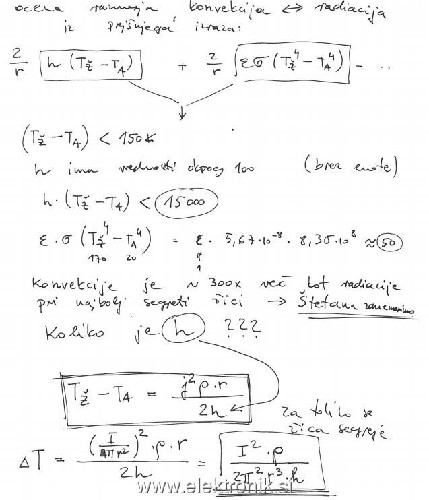 ocena razmerja konvekcija ↔ radiacija
iz prejšnjega izraza:
2/r h (Tž − TA) + 2/r εσ (Tž⁴ − TA⁴) − ...
(Tž − TA) < 150K
h ima vrednosti 100 (brez enote)
h · (Tž − TA) < 15000
ε · σ (Tž⁴ − TA⁴) = ε · 5,67·10⁻⁸ · 8,35·10⁸ ≈ 50
170 20
1
Konvekcije je ≈ 300x več kot radiacije
pri najbolj segreti žici → Štefana zanemarimo
Koliko je h ???
Tž − TA = j²ρ·r / 2h
za toliko se
žica segreje
ΔT = (I / πr²)² · ρ · r / 2h = I² · ρ / 2π² r³ · h
www.elektronik.si